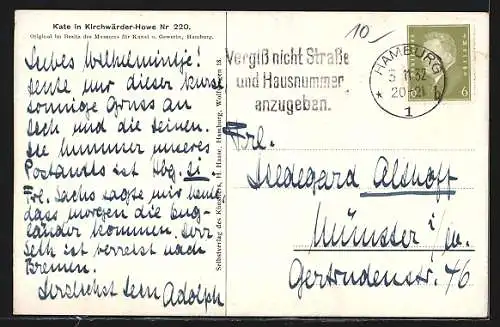 Kate in Kirchwärder-Howe Nr 220.
Original im Besitz des Museums für Kunst u. Gewerbe, Hamburg.
Liebes Wilhelmintje!
heute nur dieser kurze
sonnige Gruss an
Dich und die Deinen.
Die Nummer unseres
Postamts ist Hbg. 21.
Frl. Sachs sagte mir heute,
dass morgen die Eng-
länder kommen. Herr
Seth ist verreist nach
Bremen.
Herzlichst Dein Adolph
Selbstverlag des Künstlers, H. Haase, Hamburg, Wolfshagen 13.
10
Vergiß nicht Straße
und Hausnummer
anzugeben.
HAMBURG
20-21
1
6
Frl.
Hildegard Althoff
Münster i/W.
Gertrudenstr. 46